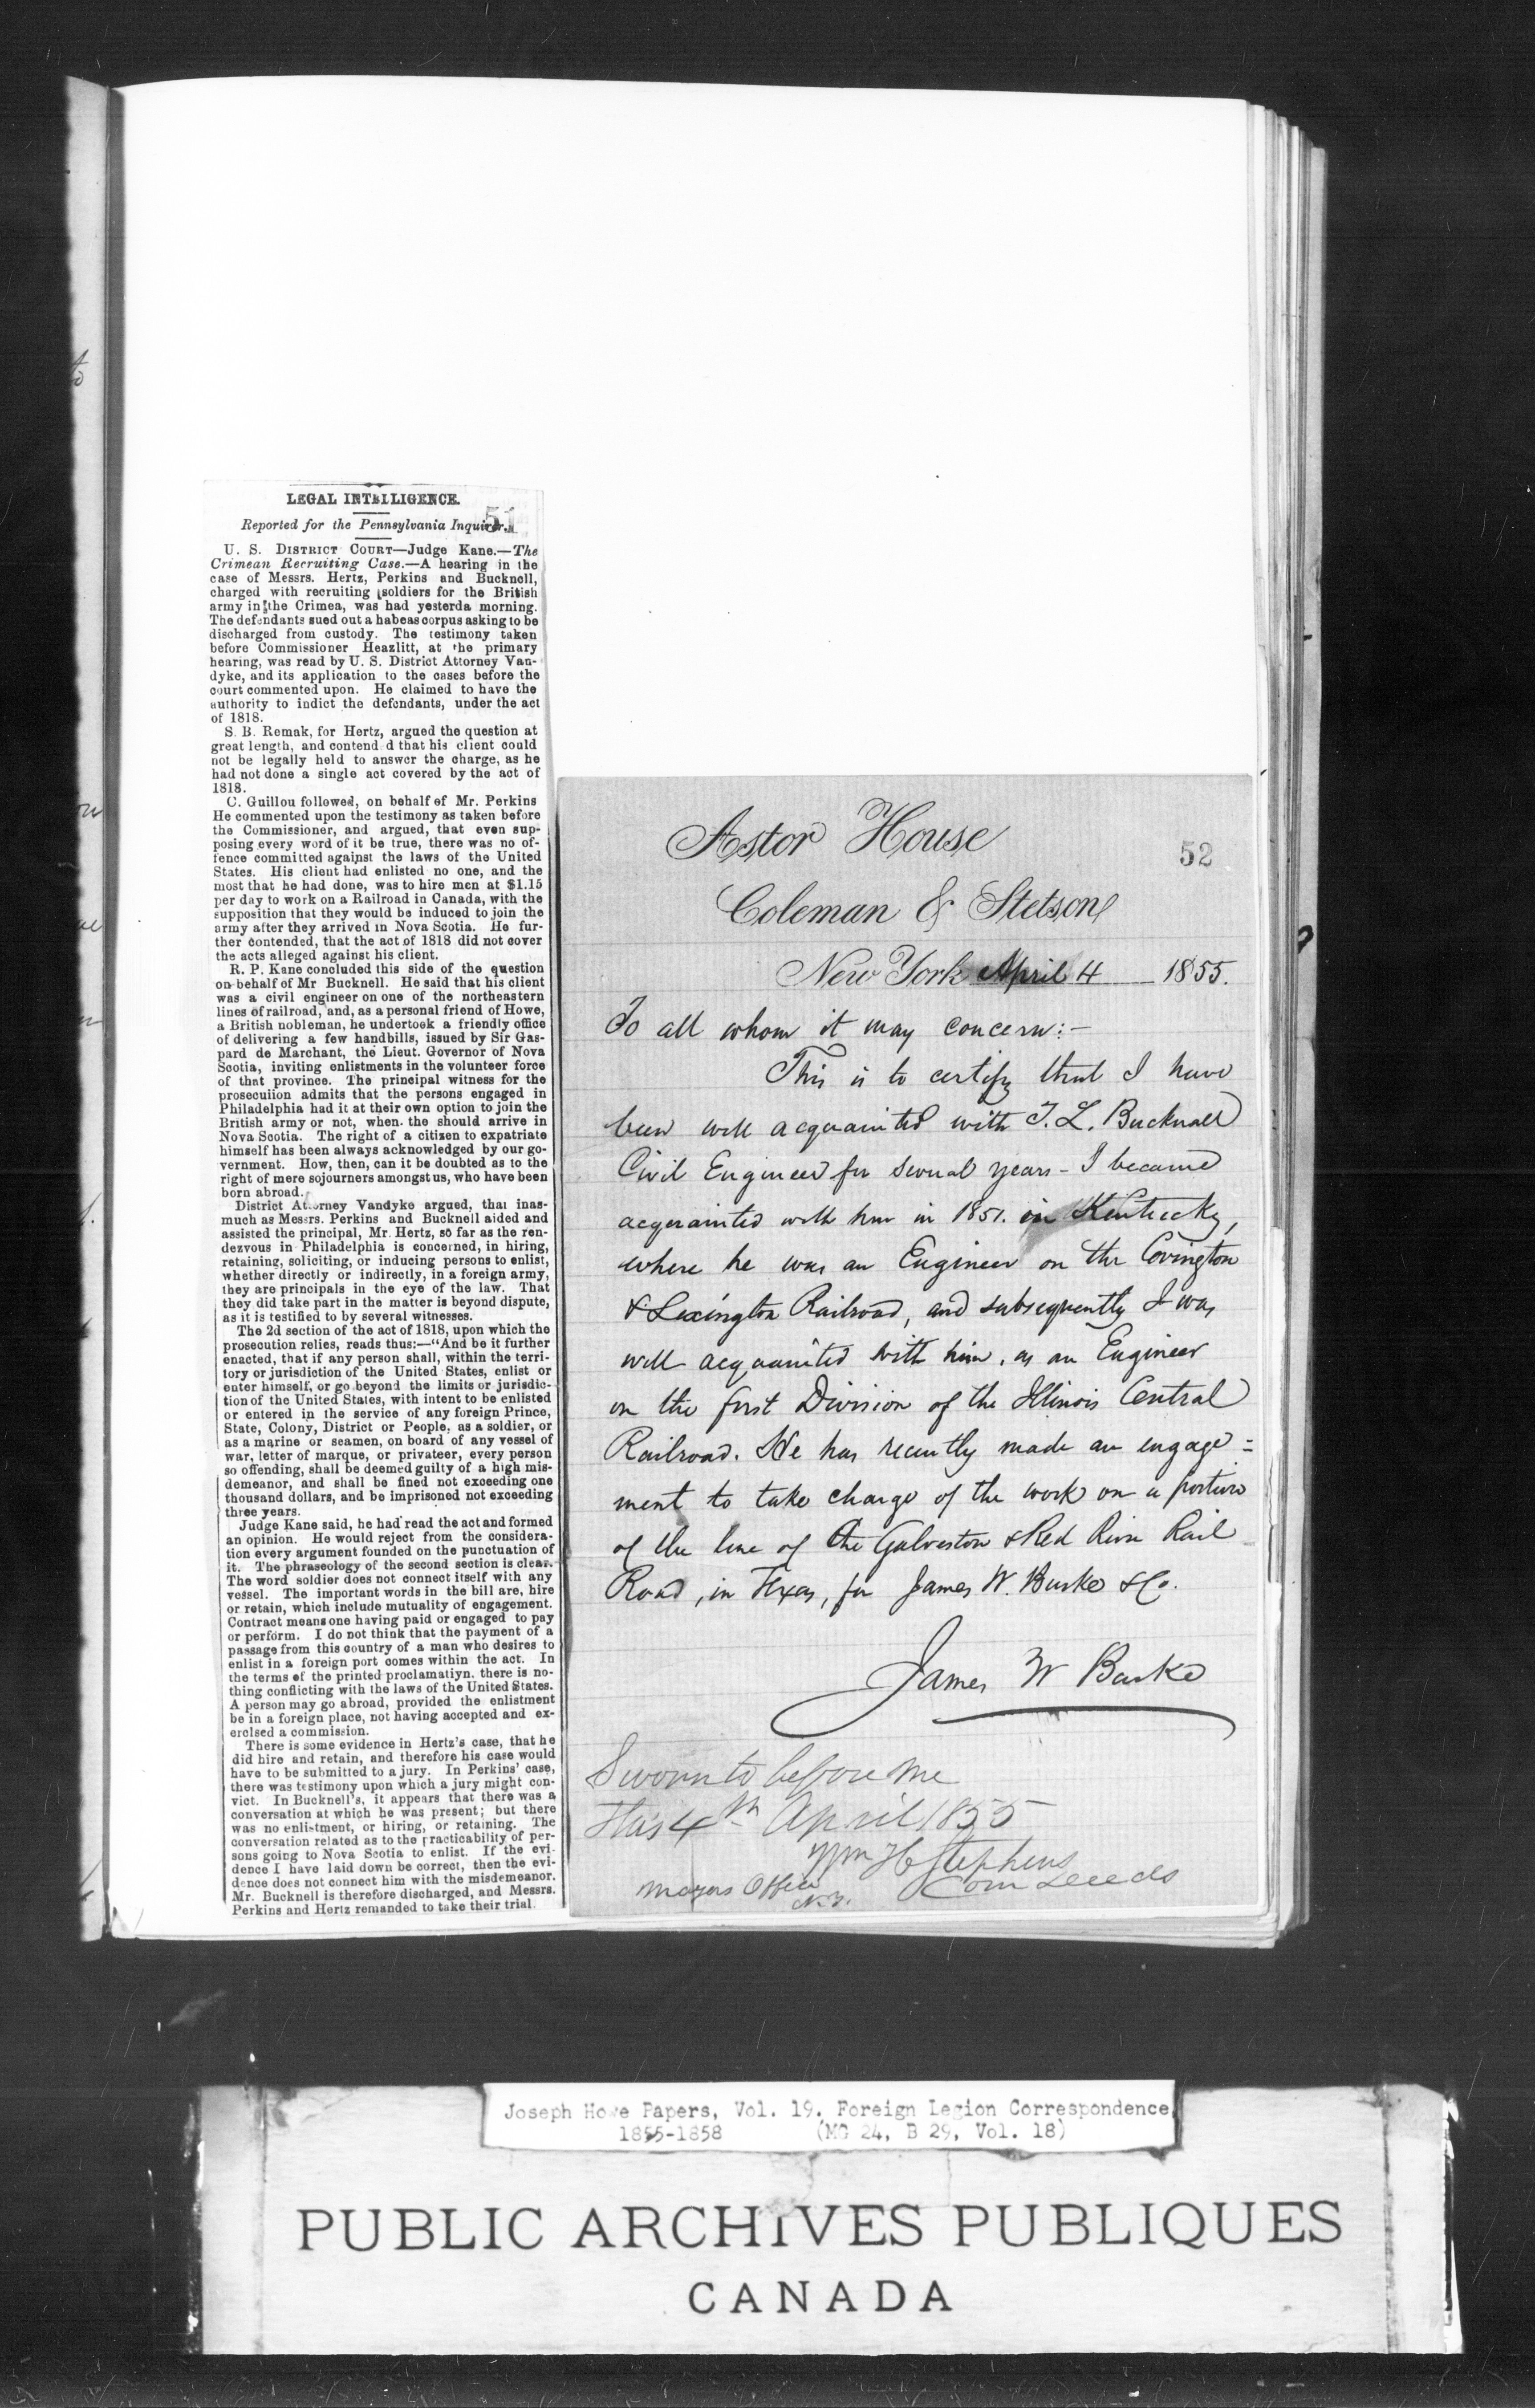 LEGAL INTELLIGENCE.
51
Reported for the Pennsylvania Inquirer.
U. S. DISTRICT COURT—Judge Kane.—The
Crimean Recruiting Case.—A hearing in the
case of Messrs. Hertz, Perkins and Bucknell,
charged with recruiting soldiers for the British
army in the Crimea, was had yesterda morning.
The defendants sued out a habeas corpus asking to be
discharged from custody. The testimony taken
before Commissioner Heazlitt, at the primary
hearing, was read by U. S. District Attorney Van-
dyke, and its application to the cases before the
court commented upon. He claimed to have the
authority to indict the defendants, under the act
of 1818.
S. B. Remak, for Hertz, argued the question at
great length, and contend d that his client could
not be legally held to answer the charge, as he
had not done a single act covered by the act of
1818.
C. Guillou followed, on behalf of Mr. Perkins
He commented upon the testimony as taken before
the Commissioner, and argued, that even sup-
posing every word of it be true, there was no of-
fence committed against the laws of the United
States. His client had enlisted no one, and the
most that he had done, was to hire men at $1.15
per day to work on a Railroad in Canada, with the
supposition that they would be induced to join the
army after they arrived in Nova Scotia. He fur-
ther contended, that the act of 1818 did not cover
the acts alleged against his client.
R. P. Kane concluded this side of the question
on behalf of Mr Bucknell. He said that his client
was a civil engineer on one of the northeastern
lines of railroad, and, as a personal friend of Howe,
a British nobleman, he undertook a friendly office
of delivering a few handbills, issued by Sir Gas-
pard de Marchant, the Lieut. Governor of Nova
Scotia, inviting enlistments in the volunteer force
of that province. The principal witness for the
prosecuiion admits that the persons engaged in
Philadelphia had it at their own option to join the
British army or not, when. the should arrive in
Nova Scotia. The right of a citizen to expatriate
himself has been always acknowledged by our go-
vernment. How, then, can it be doubted as to the
right of mere sojourners amongst us, who have been
born abroad.
District Attorney Vandyke argued, that inas-
much as Messrs. Perkins and Bucknell aided and
assisted the principal, Mr. Hertz, so far as the ren-
dezvous in Philadelphia is concerned, in hiring,
retaining, soliciting, or inducing persons to enlist,
whether directly or indirectly, in a foreign army,
they are principals in the eye of the law. That
they did take part in the matter is beyond dispute,
as it is testified to by several witnesses.
The 2d section of the act of 1818, upon which the
prosecution relies, reads thus:—"And be it further
enacted, that if any person shall, within the terri-
tory or jurisdiction of the United States, enlist or
enter himself, or go beyond the limits or jurisdic-
tion of the United States, with intent to be enlisted
or entered in the service of any foreign Prince,
State, Colony, District or People, as a soldier, or
as a marine or seamen, on board of any vessel of
war, letter of marque, or privateer, every person
so offending, shall be deemed guilty of a high mis-
demeanor, and shall be fined not exceeding one
thousand dollars, and be imprisoned not exceeding
three years.
Judge Kane said, he had read the act and formed
an opinion. He would reject from the considera-
tion every argument founded on the punctuation of
it. The phraseology of the second section is clear.
The word soldier does not connect itself with any
vessel. The important words in the bill are, hire
or retain, which include mutuality of engagement.
Contract means one having paid or engaged to pay
or perform. I do not think that the payment of a
passage from this country of a man who desires to
enlist in a foreign port comes within the act. In
the terms of the printed proclamatiyn. there is no-
thing conflicting with the laws of the United States.
A person may go abroad, provided the enlistment
be in a foreign place, not having accepted and ex-
erclsed a commission.
There is some evidence in Hertz's case, that he
did hire and retain, and therefore his case would
have to be submitted to a jury. In Perkins' case,
there was testimony upon which a jury might con-
vict. In Bucknell's, it appears that there was a
conversation at which he was present; but there
was no enlistment, or hiring, or retaining. The
conversation related as to the practicability of per-
sons going to Nova Scotia to enlist. If the evi-
dence I have laid down be correct, then the evi-
dence does not connect him with the misdemeanor.
Mr. Bucknell is therefore discharged, and Messrs.
Perkins and Hertz remanded to take their trial.
Astor House
52
Coleman & Stetson
New York April 4 1855.
To all whom it may concern:-
This is to certify that I have
been well acquainted with T. L. Bucknall
Civil Engineer for several years - I became
acquainted with him in 1851. in Kentucky,
where he was an Engineer on the Covington
& Lexington Railroad, and subsequently I was
well acquainted with him, as an Engineer
on the first Division of the Illinois Central
Railroad. He has recently made an engage=
ment to take charge of the work on a portion
of the line of the Galveston & Red River Rail
Road, in Texas, for James W. Burke & Co.
James W Burke
Sworn to before me
this 4th April 1855
Wm H Stephens
Com Deeds
Mayors Office
N.Y.
Joseph Howe Papers, Vol. 19. Foreign Legion Correspondence
1855-1858 (MG 24, B 29, Vol. 18)
PUBLIC ARCHIVES PUBLIQUES
CANADA